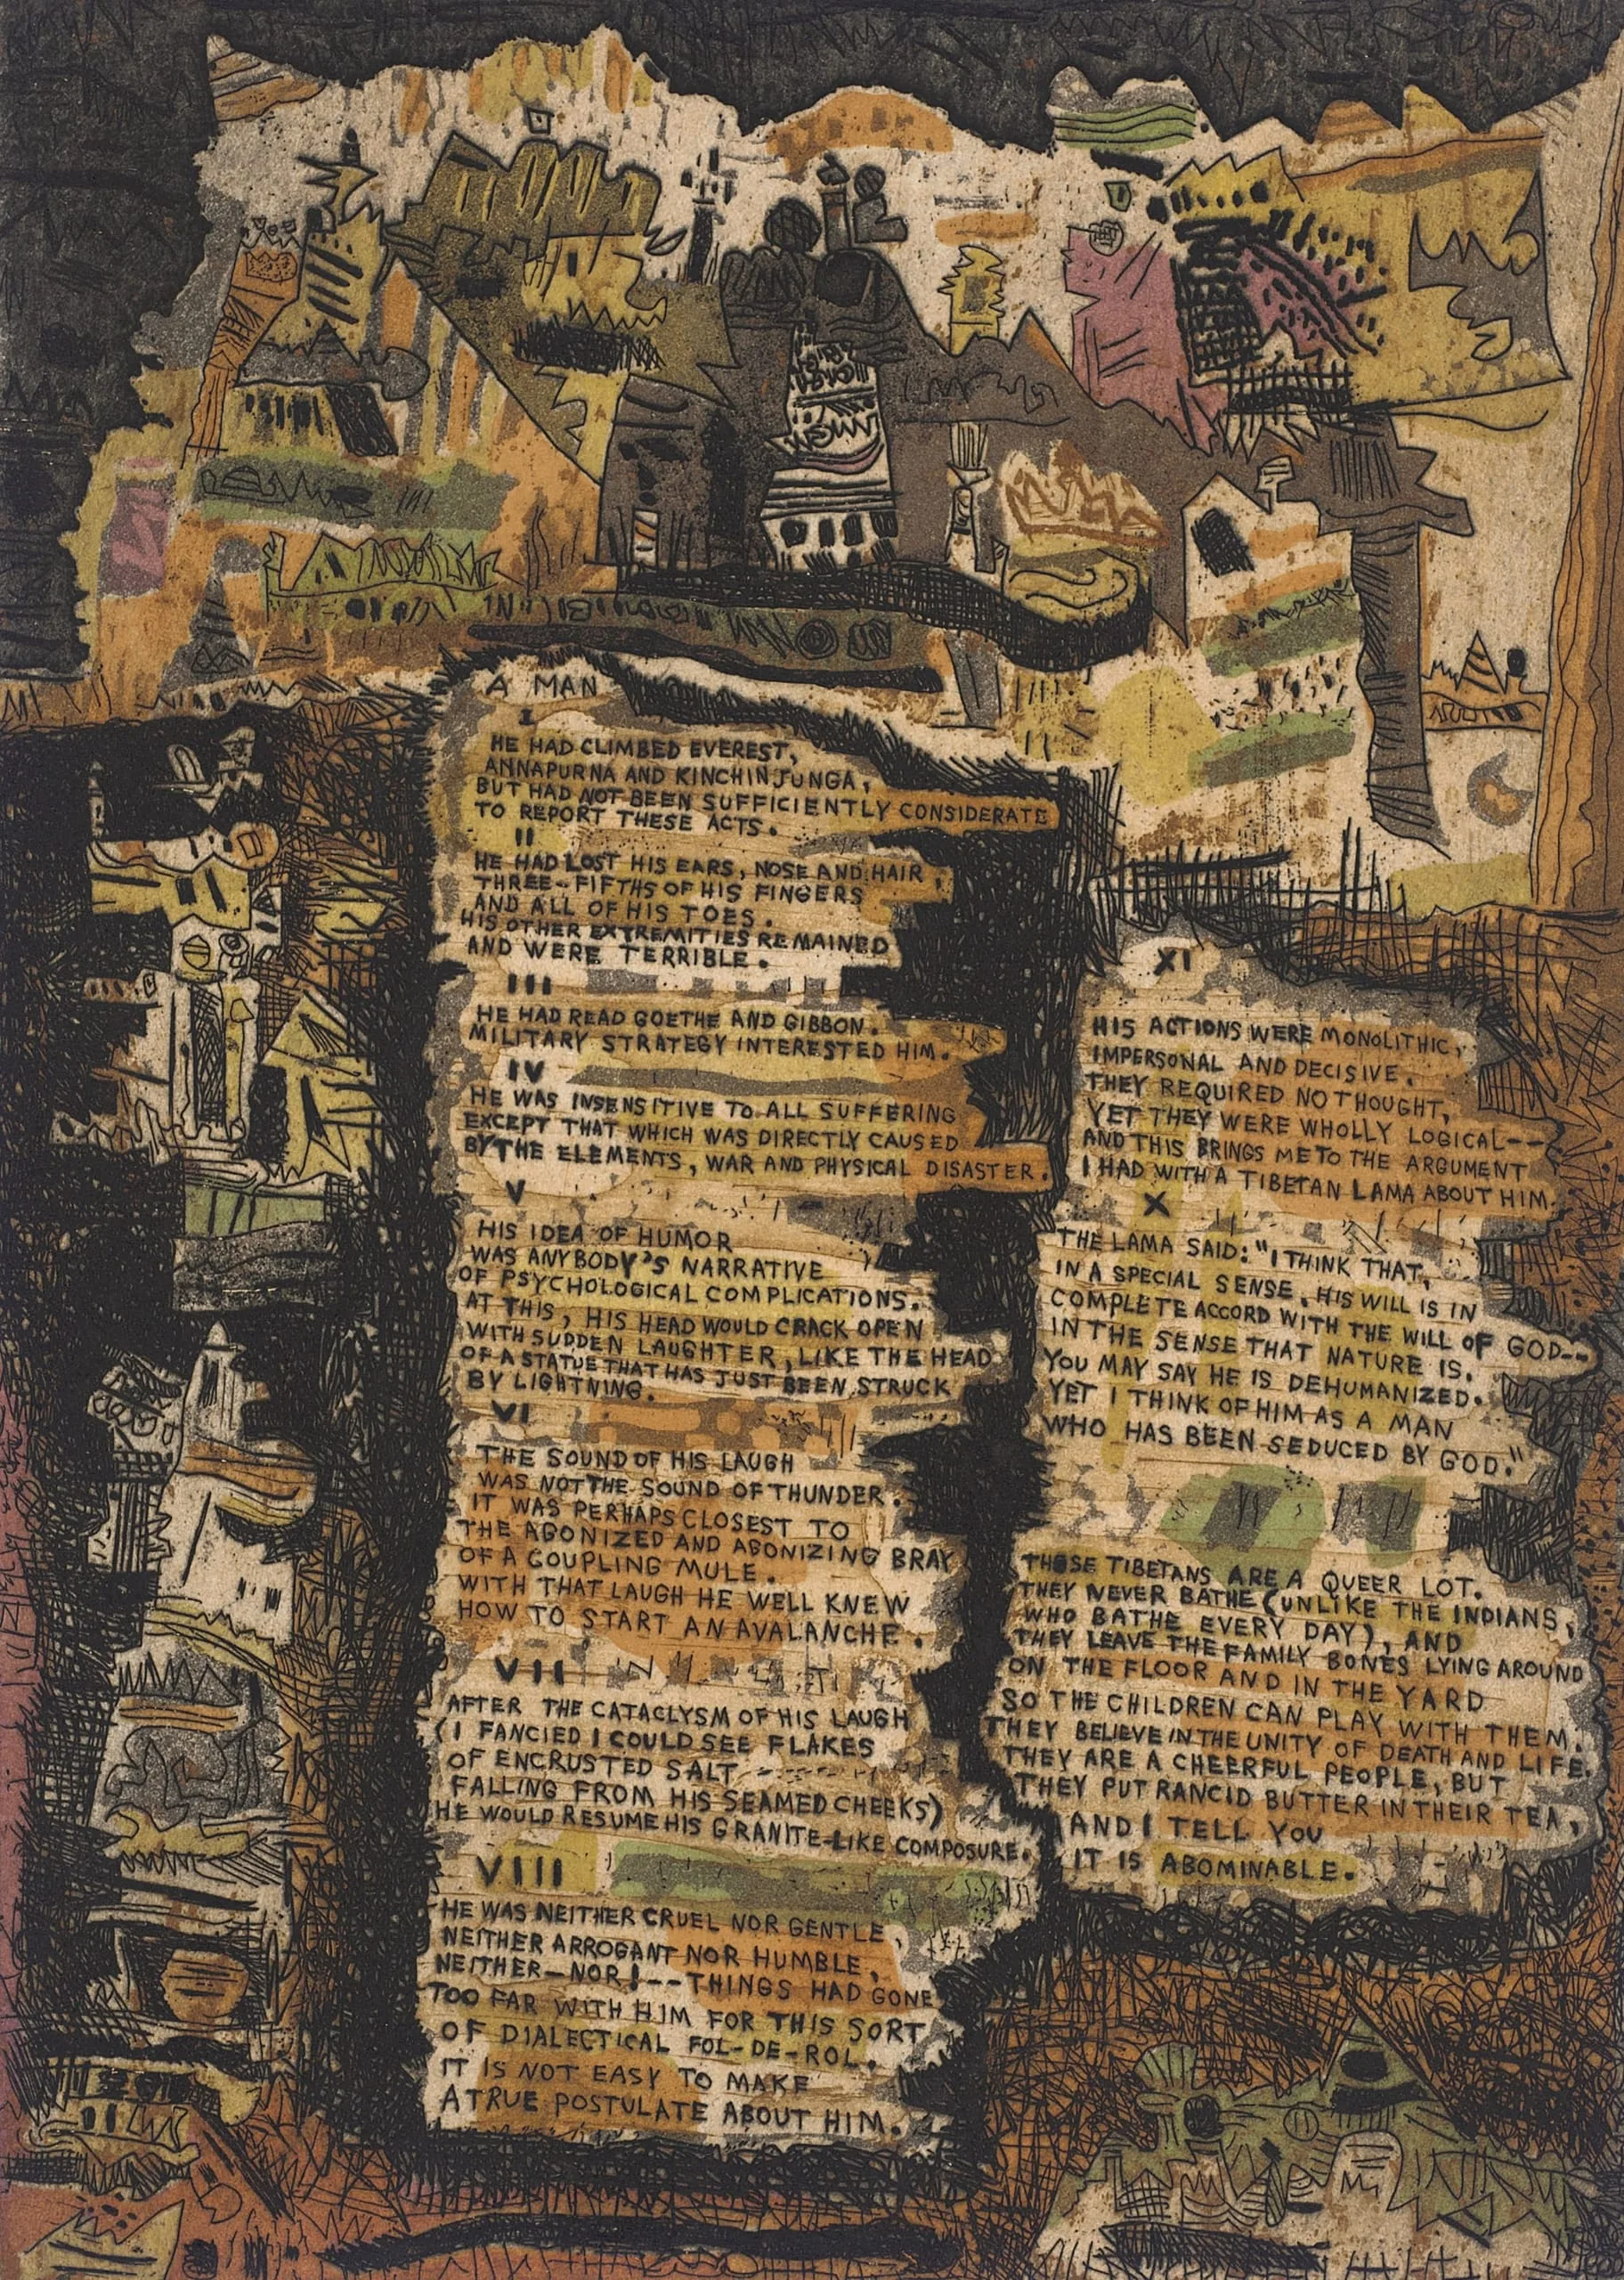 A MAN
I
HE HAD CLIMBED EVEREST,
ANNAPURNA AND KINCHINJUNGA,
BUT HAD NOT BEEN SUFFICIENTLY CONSIDERATE
TO REPORT THESE ACTS.
II
HE HAD LOST HIS EARS, NOSE AND HAIR,
THREE-FIFTHS OF HIS FINGERS
AND ALL OF HIS TOES.
HIS OTHER EXTREMITIES REMAINED
AND WERE TERRIBLE.
III
HE HAD READ GOETHE AND GIBBON.
MILITARY STRATEGY INTERESTED HIM.
IV
HE WAS INSENSITIVE TO ALL SUFFERING
EXCEPT THAT WHICH WAS DIRECTLY CAUSED
BY THE ELEMENTS, WAR AND PHYSICAL DISASTER.
V
HIS IDEA OF HUMOR
WAS ANYBODY'S NARRATIVE
OF PSYCHOLOGICAL COMPLICATIONS.
AT THIS, HIS HEAD WOULD CRACK OPEN
WITH SUDDEN LAUGHTER, LIKE THE HEAD
OF A STATUE THAT HAS JUST BEEN STRUCK
BY LIGHTNING.
VI
THE SOUND OF HIS LAUGH
WAS NOT THE SOUND OF THUNDER.
IT WAS PERHAPS CLOSEST TO
THE AGONIZED AND AGONIZING BRAY
OF A COUPLING MULE.
WITH THAT LAUGH HE WELL KNEW
HOW TO START AN AVALANCHE.
VII
AFTER THE CATACLYSM OF HIS LAUGH
(I FANCIED I COULD SEE FLAKES
OF ENCRUSTED SALT
FALLING FROM HIS SEAMED CHEEKS)
HE WOULD RESUME HIS GRANITE-LIKE COMPOSURE.
VIII
HE WAS NEITHER CRUEL NOR GENTLE,
NEITHER ARROGANT NOR HUMBLE,
NEITHER-NOR!--THINGS HAD GONE
TOO FAR WITH HIM FOR THIS SORT
OF DIALECTICAL FOL-DE-ROL.
IT IS NOT EASY TO MAKE
A TRUE POSTULATE ABOUT HIM.
XI
HIS ACTIONS WERE MONOLITHIC,
IMPERSONAL AND DECISIVE.
THEY REQUIRED NO THOUGHT,
YET THEY WERE WHOLLY LOGICAL--
AND THIS BRINGS ME TO THE ARGUMENT
I HAD WITH A TIBETAN LAMA ABOUT HIM.
X
THE LAMA SAID: "I THINK THAT,
IN A SPECIAL SENSE, HIS WILL IS IN
COMPLETE ACCORD WITH THE WILL OF GOD--
IN THE SENSE THAT NATURE IS.
YOU MAY SAY HE IS DEHUMANIZED.
YET I THINK OF HIM AS A MAN
WHO HAS BEEN SEDUCED BY GOD."
THOSE TIBETANS ARE A QUEER LOT.
THEY NEVER BATHE (UNLIKE THE INDIANS,
WHO BATHE EVERY DAY), AND
THEY LEAVE THE FAMILY BONES LYING AROUND
ON THE FLOOR AND IN THE YARD
SO THE CHILDREN CAN PLAY WITH THEM.
THEY BELIEVE IN THE UNITY OF DEATH AND LIFE.
THEY ARE A CHEERFUL PEOPLE, BUT
THEY PUT RANCID BUTTER IN THEIR TEA,
AND I TELL YOU
IT IS ABOMINABLE.